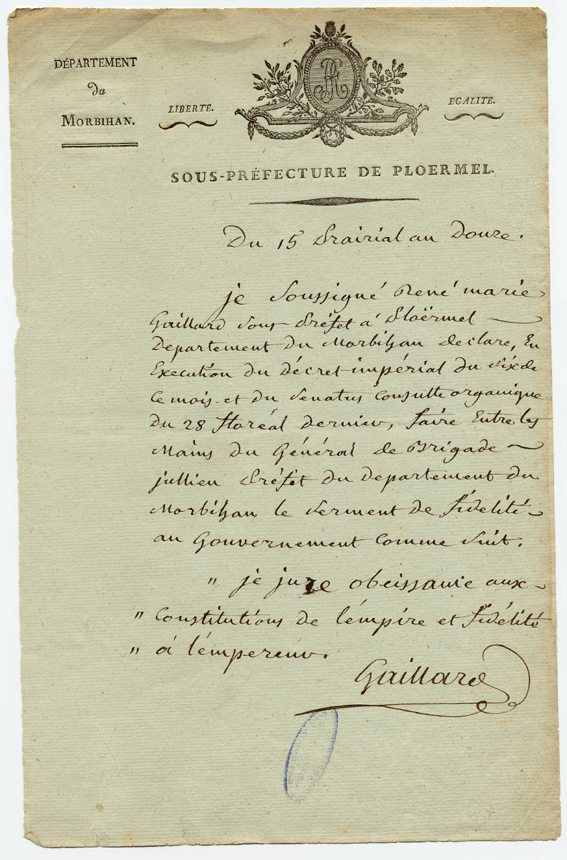 DÉPARTEMENT
du
MORBIHAN.
LIBERTE.
EGALITE.
SOUS-PRÉFECTURE DE PLOERMEL.
Du 15 prairial an Douze.
je soussigné René marie
Gaillard sous préfet à Ploërmel
Departement du Morbihan declare, En
Execution du Décret impérial du six de
ce mois et du senatus consulte organique
du 28 floréal dernier, faire Entre les
Mains du Général de Brigade
jullien préfet du departement du
Morbihan le serment de fidélité
au Gouvernement comme suit.
" je jure obeissance aux
" constitutions de l'émpire et fidélité
" à l'émpereur.
Gaillard